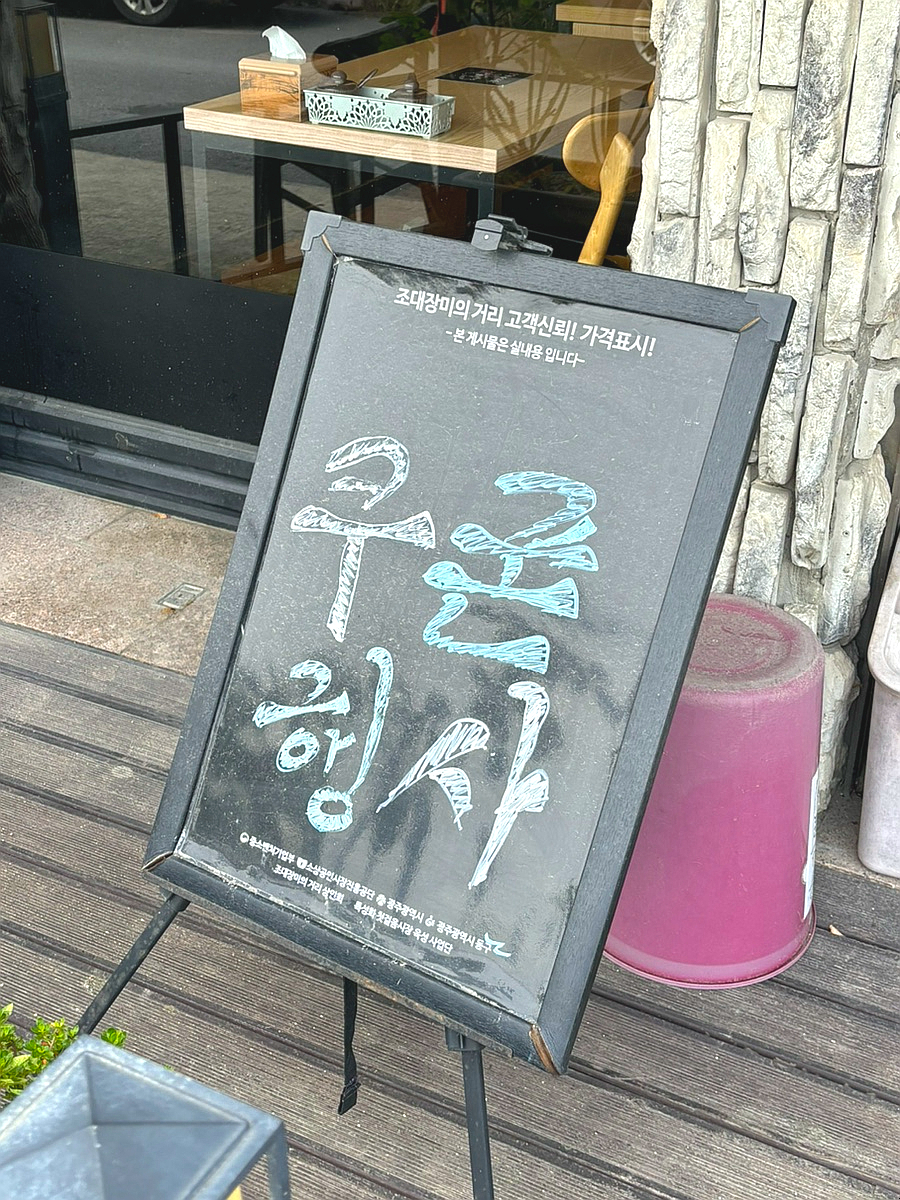 조대장미의 거리 고객신뢰! 가격표시!
- 본 게시물은 실내용 입니다-
쿠폰
행사
중소벤처기업부 소상공인시장진흥공단 광주광역시 광주광역시 동구
조대장미의 거리 상인회 특성화 첫걸음시장 육성 사업단